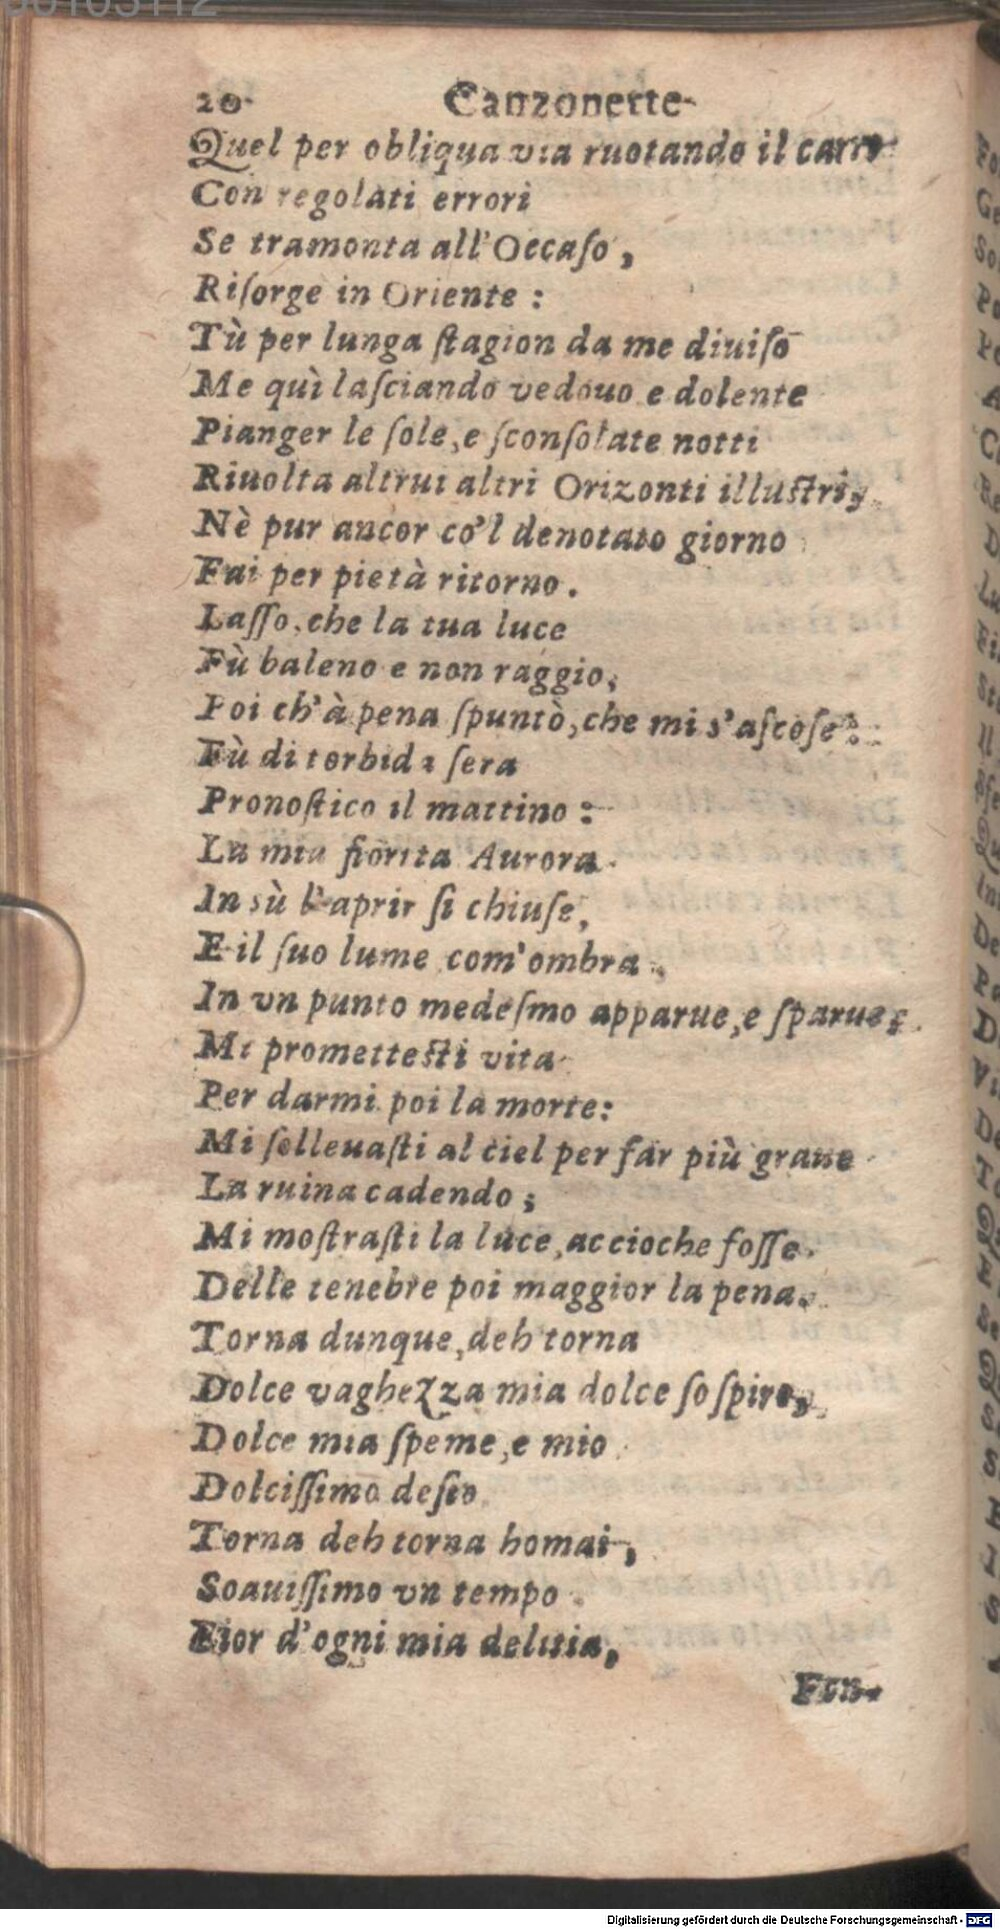 00103112
20 Canzonette
Quel per obliqua via ruotando il carro
Con regolati errori
Se tramonta all'Occaſo,
Riſorge in Oriente :
Tù per lunga ſtagion da me diuiſo
Me quì laſciando vedouo e dolente
Pianger le ſole, e ſconſolate notti
Riuolta altrui altri Orizonti illuſtri,
Nè pur ancor co'l denotato giorno
Fai per pietà ritorno.
Laſſo, che la tua luce
Fù baleno e non raggio,
Poi ch'à pena ſpuntò, che mi s'aſcoſe:
Fù di torbida ſera
Pronoſtico il mattino :
La mia fiorita Aurora
In sù l'aprir ſi chiuſe,
E il ſuo lume com'ombra,
In vn punto medeſmo apparue, e ſparue;
Mi prometteſti vita
Per darmi poi la morte:
Mi ſolleuaſti al ciel per far più graue
La ruina cadendo;
Mi moſtraſti la luce, accioche foſſe
Delle tenebre poi maggior la pena.
Torna dunque, deh torna
Dolce vaghezza mia dolce ſoſpiro,
Dolce mia ſpeme, e mio
Dolciſſimo deſio
Torna deh torna homai,
Soauiſſimo vn tempo
Fior d'ogni mia delitia,
Fon-
Digitalisierung gefördert durch die Deutsche Forschungsgemeinschaft - DFG